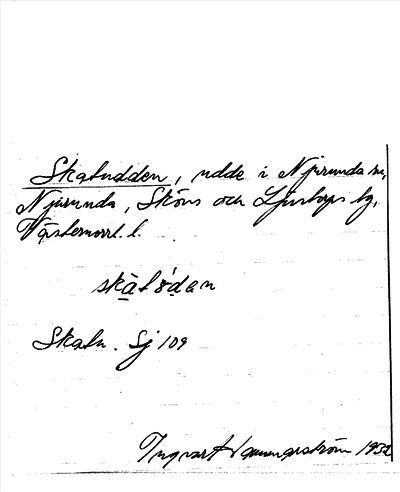 Skatudden, udde i Njurunda sn,
Njurunda, Sköns och Ljustorps tg,
Västernorrl. l.
skàtódan
Skatn. Sj 109
Ingvar Hammarström 1932